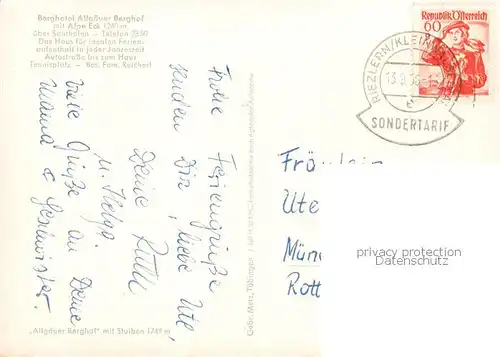 Berghotel Allgäuer Berghof
mit Alpe Eck 1260 m
über Sonthofen – Telefon 2850
Das Haus für idealen Ferien-
aufenthalt in jeder Jahreszeit
Autostraße bis zum Haus
Tennisplatz – Bes. Fam. Reichert
60
Republik Österreich
RIEZLERN/KLEINW
13.9.56-1
e
SONDERTARIF
Frohe Feriengrüße
senden Dir, liebe Ute,
Deine Ruth
u. Helga.
Viele Grüße an Deine
Mama & Geschwister.
Gebr. Metz, Tübingen
Fräulein
Ute
Mün
Rott
privacy protection
Datenschutz
„Allgäuer Berghof" mit Stuiben 1749 m